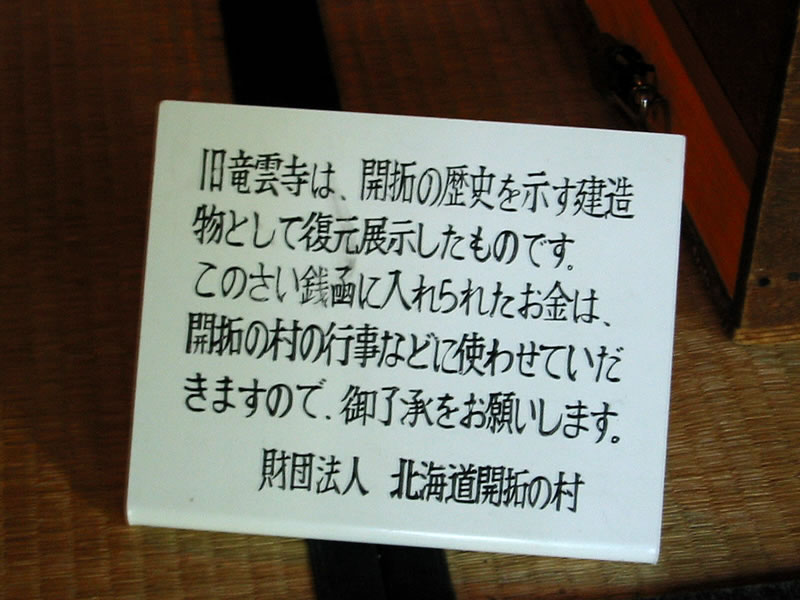 旧竜雲寺は、開拓の歴史を示す建造
物として復元展示したものです。
このさい銭函に入れられたお金は、
開拓の村の行事などに使わせていだ
きますので、御了承をお願いします。
財団法人 北海道開拓の村